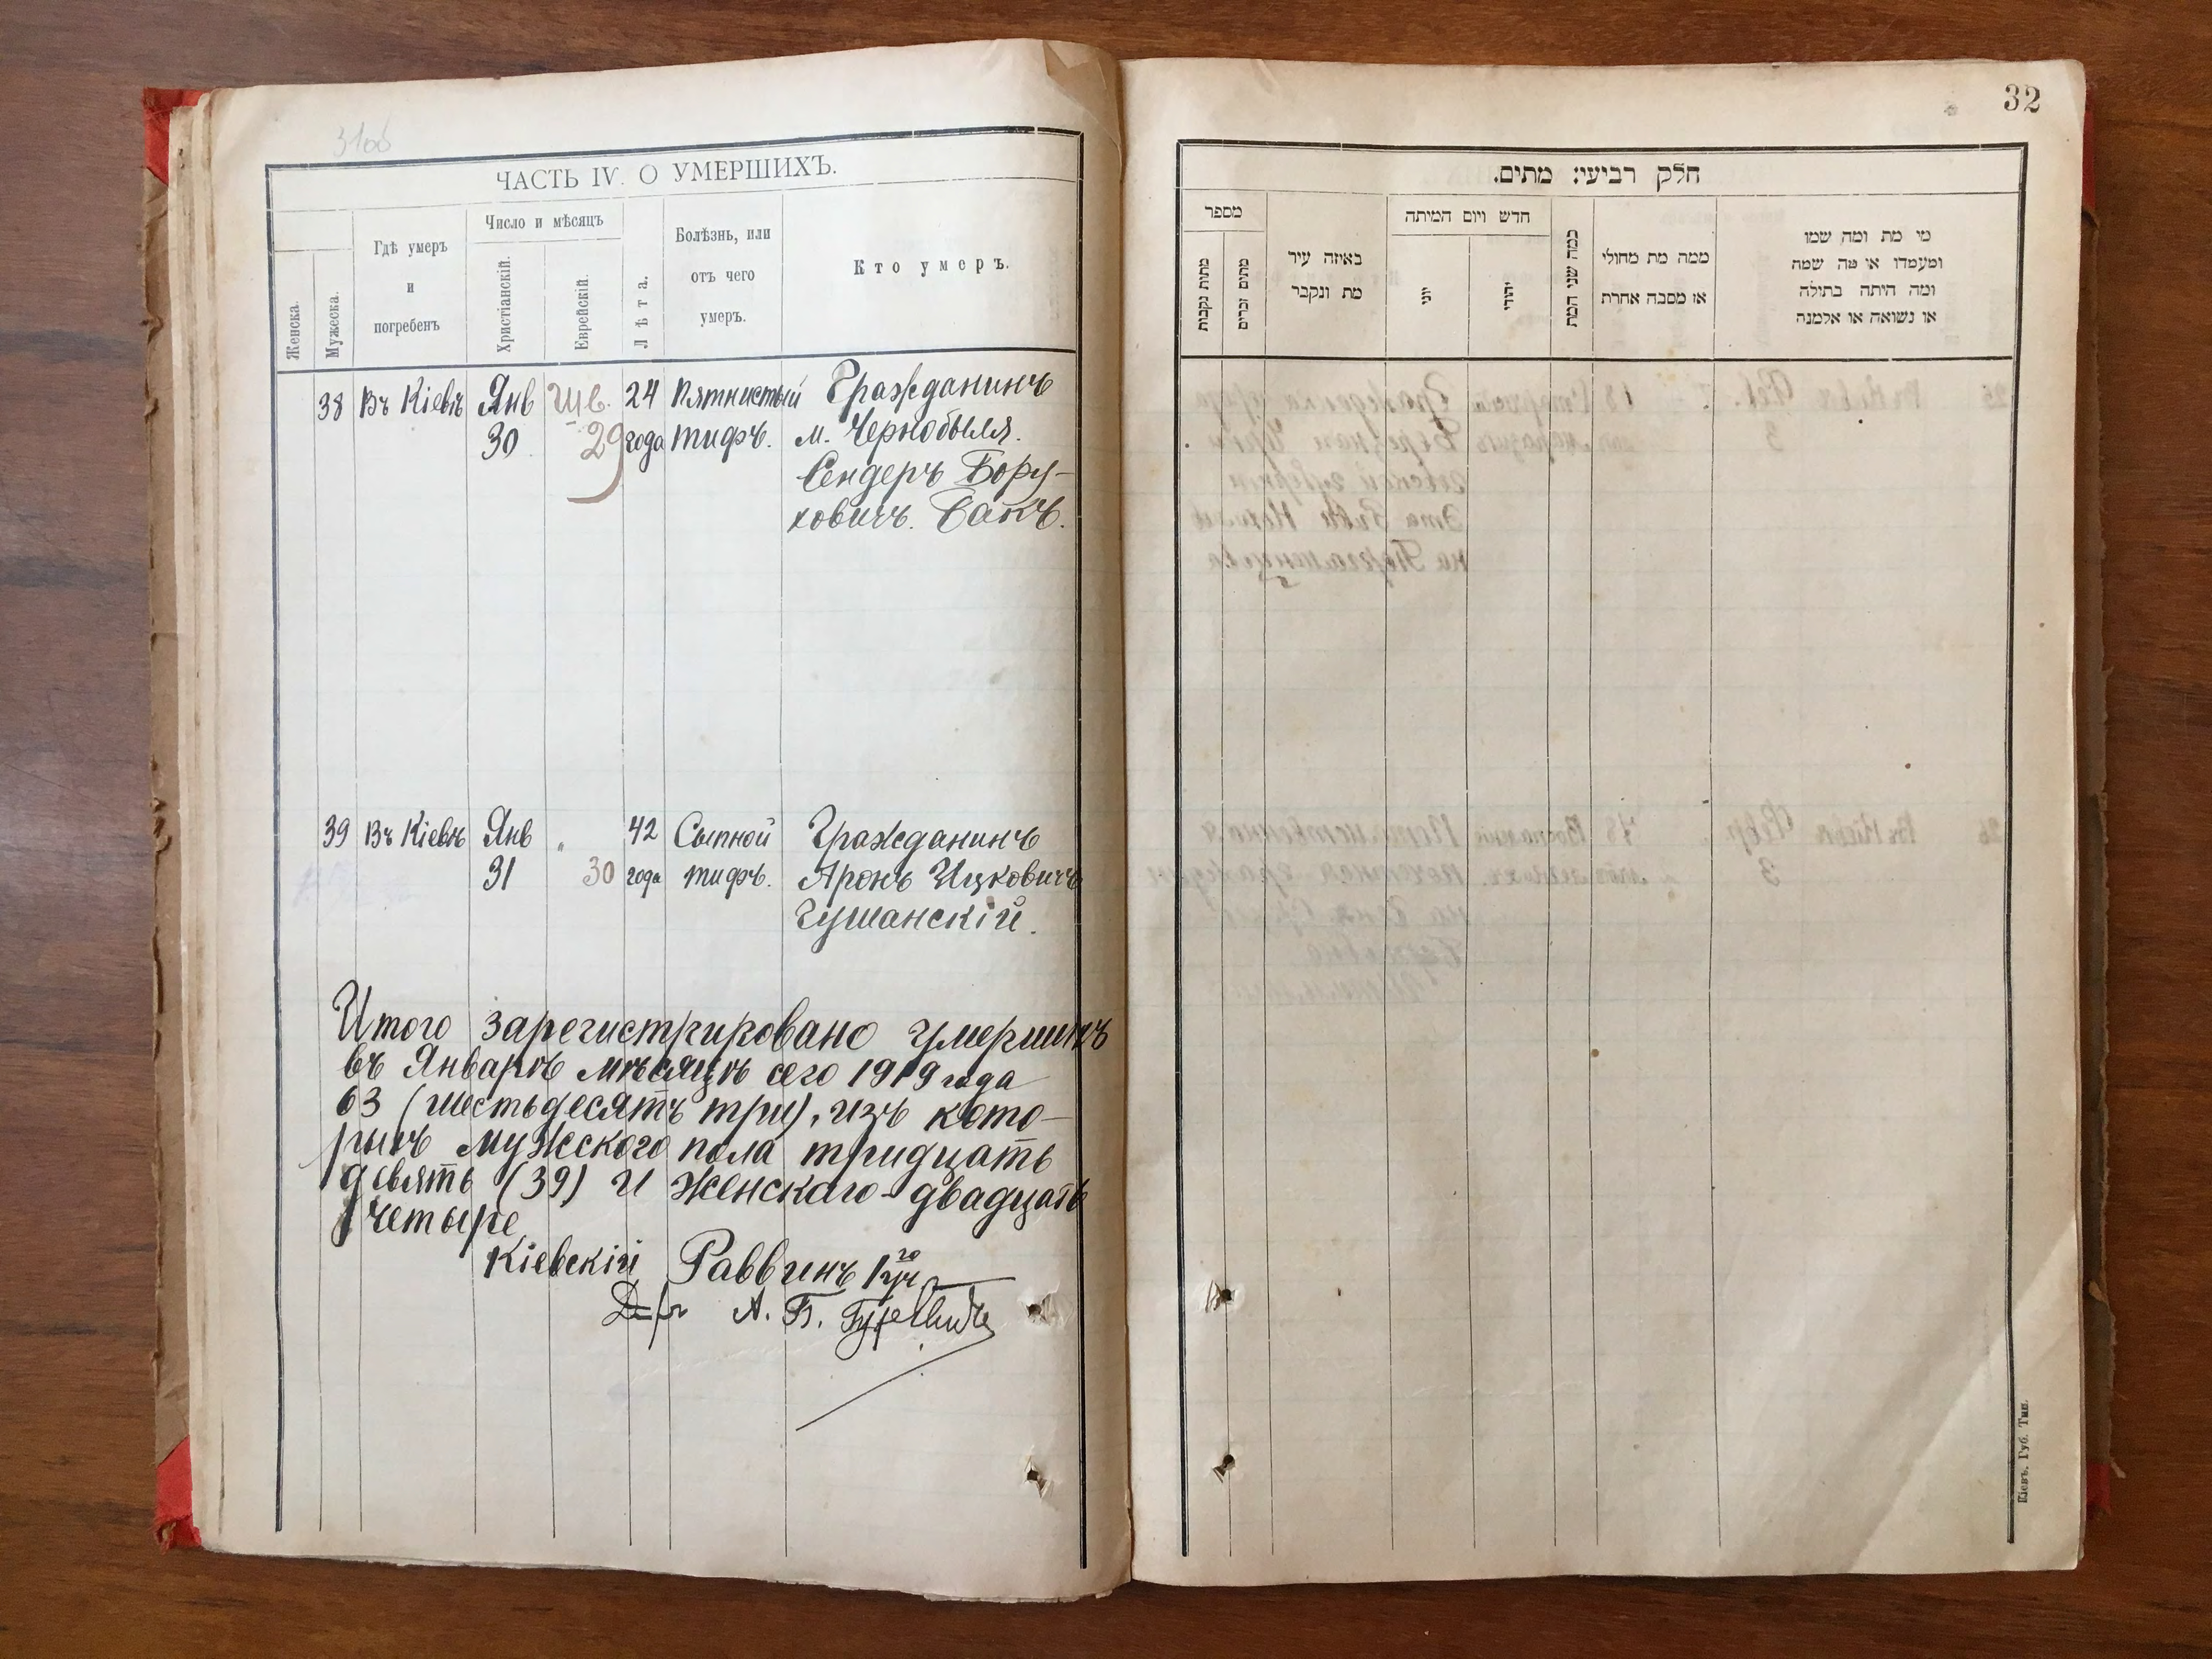 31об
ЧАСТЬ IV. О УМЕРШИХЪ.
Женска.
Мужеска.
Гдѣ умеръ
и
погребенъ
Число и мѣсяцъ
Христіанскій.
Еврейскій.
Лѣта.
Болѣзнь, или
отъ чего
умеръ.
Кто умеръ.
38 Въ Кіевѣ Янв Шв. 24 Пятнистый Гражданинъ
30 29 года тифъ. м. Чернобыля.
Сендеръ Бору-
ховичъ. Бакъ.
39 Въ Кіевѣ Янв " 42 Сыпной Гражданинъ
31 30 года тифъ. Аронъ Ицковичъ
Гушанскій.
Итого зарегистрировано умершихъ
въ Январѣ мѣсяцѣ сего 1919 года
63 (шестьдесятъ три), изъ кото-
рыхъ мужского пола тридцать
девять (39) и женскаго - двадцать
четыре
Кіевскій Раввинъ 1го уч.
Д-ръ А. Б. Гуревичъ
32
חלק רביעי: מתים.
מספר
מתות נקבות
מתים זכרים
באיזה עיר
מת ונקבר
חדש ויום המיתה
יוני
יהודי
כמה שני המת
ממה מת מחולי
או מסבה אחרת
מי מת ומה שמו
ומעמדו או מה שמה
ומה היתה בתולה
או נשואה או אלמנה
Кіевъ. Губ. Тип.